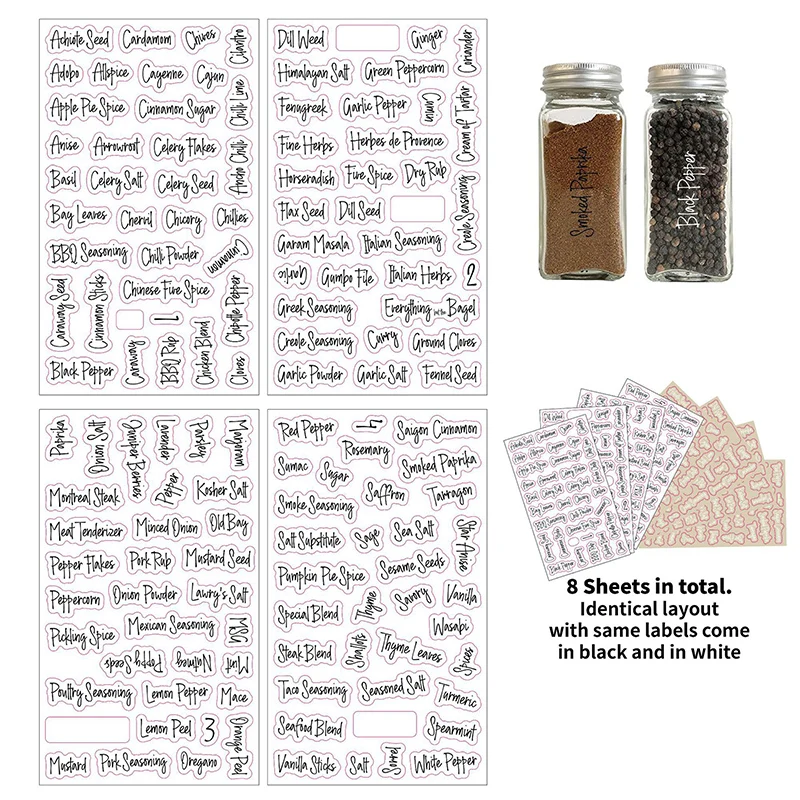 Achiote Seed Cardamom Chives Cilantro
Adobo Allspice Cayenne Cajun
Chili Lime
Apple Pie Spice Cinnamon Sugar
Anise Arrowroot Celery Flakes
Ancho Chili
Basil Celery Salt Celery Seed
Bay Leaves Chervil Chicory Chilies
BBQ Seasoning Chili Powder Cinnamon
Caraway Seed Cinnamon Sticks Chinese Five Spice Chipotle Powder
1
Black Pepper Caraway BBQ Rub Chicken Blend Cloves
Dill Weed Ginger Coriander
Himalayan Salt Green Peppercorn
Fenugreek Garlic Pepper Cumin Cream of Tartar
Fine Herbs Herbes de Provence
Horseradish Five Spice Dry Rub
Flax Seed Dill Seed Creole Seasoning
Garam Masala Italian Seasoning
Garlic Gumbo File Italian Herbs 2
Greek Seasoning Everything but the Bagel
Creole Seasoning Curry Ground Cloves
Garlic Powder Garlic Salt Fennel Seed
Smoked Paprika
Black Pepper
Paprika Onion Salt Juniper Berries Lavender Parsley Marjoram
Montreal Steak Pepper Kosher Salt
Meat Tenderizer Minced Onion Old Bay
Pepper Flakes Pork Rub Mustard Seed
Peppercorn Onion Powder Lawry's Salt
Pickling Spice Mexican Seasoning MSG
Poppy Seeds Nutmeg Mint
Poultry Seasoning Lemon Pepper Mace
Lemon Peel 3 Orange Peel
Mustard Pork Seasoning Oregano
Red Pepper 4 Saigon Cinnamon
Rosemary
Sumac Sugar Smoked Paprika
Smoke Seasoning Saffron Tarragon
Salt Substitute Sage Sea Salt Star Anise
Pumpkin Pie Spice Sesame Seeds
Special Blend Thyme Savory Vanilla
Wasabi
Steak Blend Shallots Thyme Leaves Spices
Taco Seasoning Seasoned Salt Turmeric
Seafood Blend Spearmint
Vanilla Sticks Salt Sorrel White Pepper
8 Sheets in total.
Identical layout
with same labels come
in black and in white